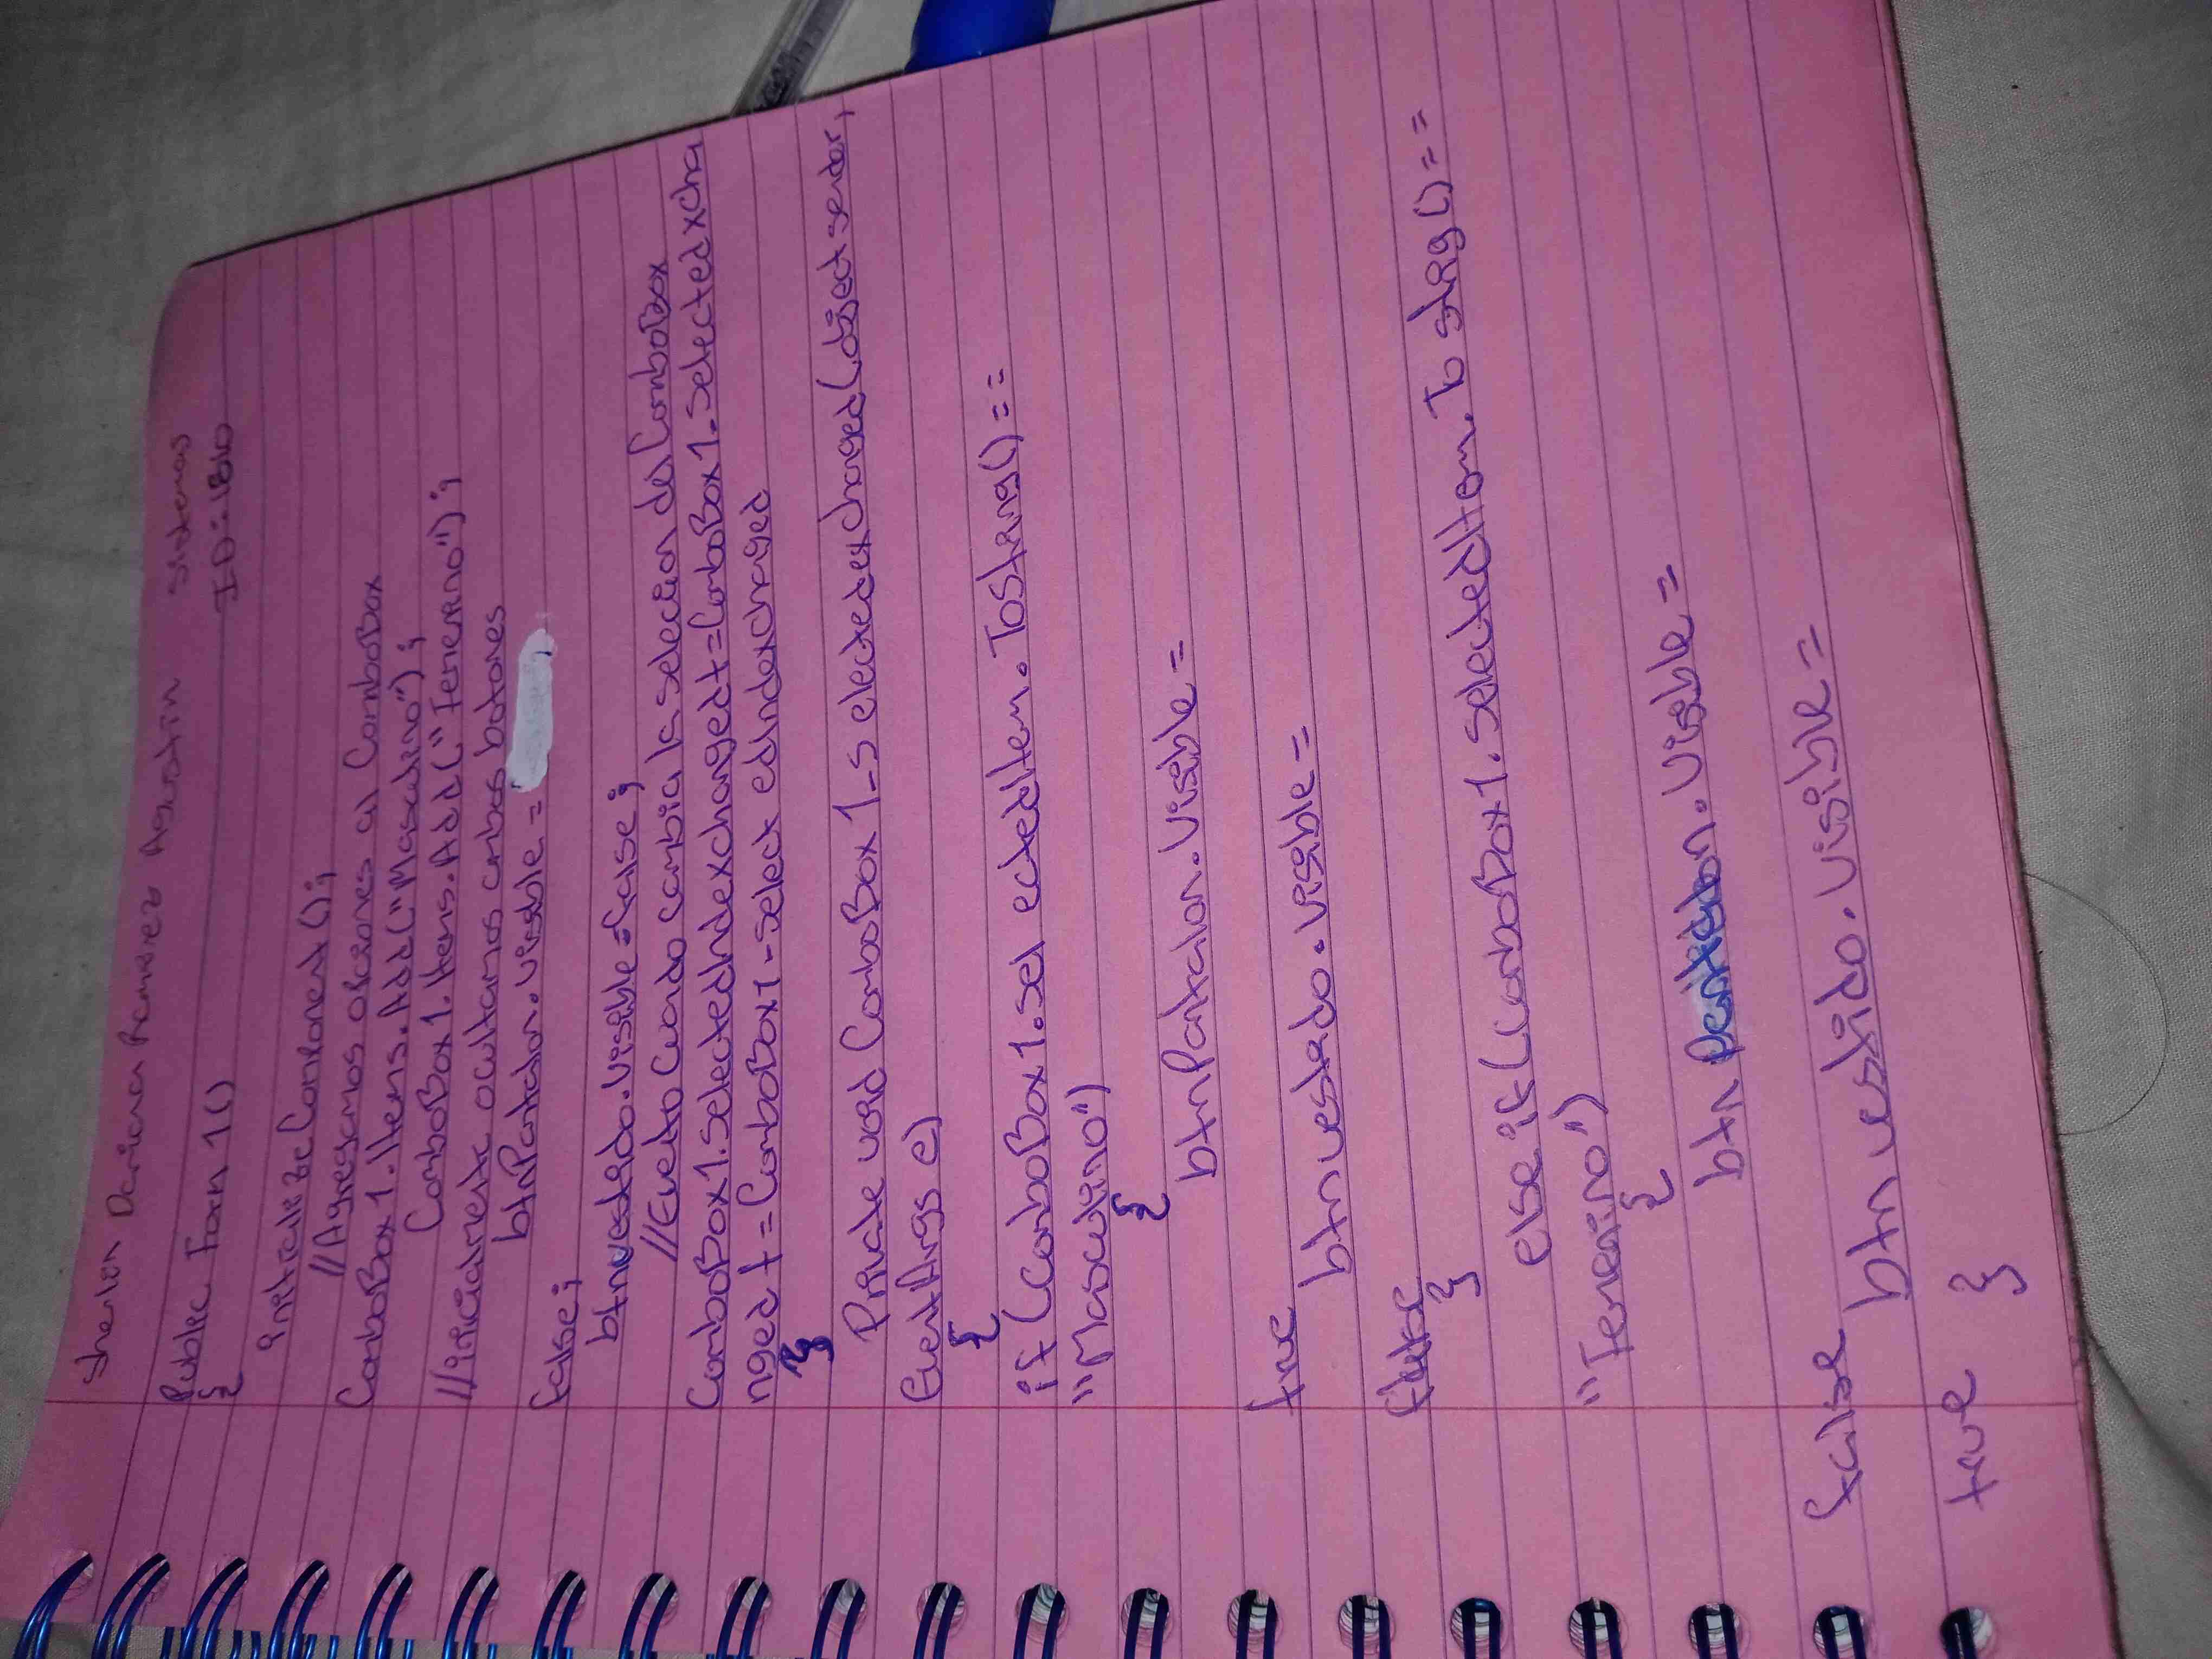 Sherlyn Dariana Ramirez Agustin Sistemas
Public Form 1() ID:1810
{
initialize Component();
//Agregamos opciones al ComboBox
ComboBox1.Items.Add("Masculino");
ComboBox1.Items.Add("Femenino");
//inicialmente ocultamos ambos botones
btnPantalon.visible =
false;
btnvestido.visible=false;
//Evento cuando cambia la selecion del ComboBox
ComboBox1.selectedIndexchanged+=ComboBox1_selectedxcha
nged t=ComboBox1-select edindexchanged
}
Private void ComboBox1_selectedexchanged(object sender,
EventArgs e)
{
if (ComboBox1.sel ectedItem.ToString()==
"Masculino")
{
btnPantalon.visible=
true
btnvestado.visible=
false
}
else if (ComboBox1.selectedItem.To strng()==
"Femenino")
{
btn Pantalon.visible=
false
btn vestido.visible=
true }